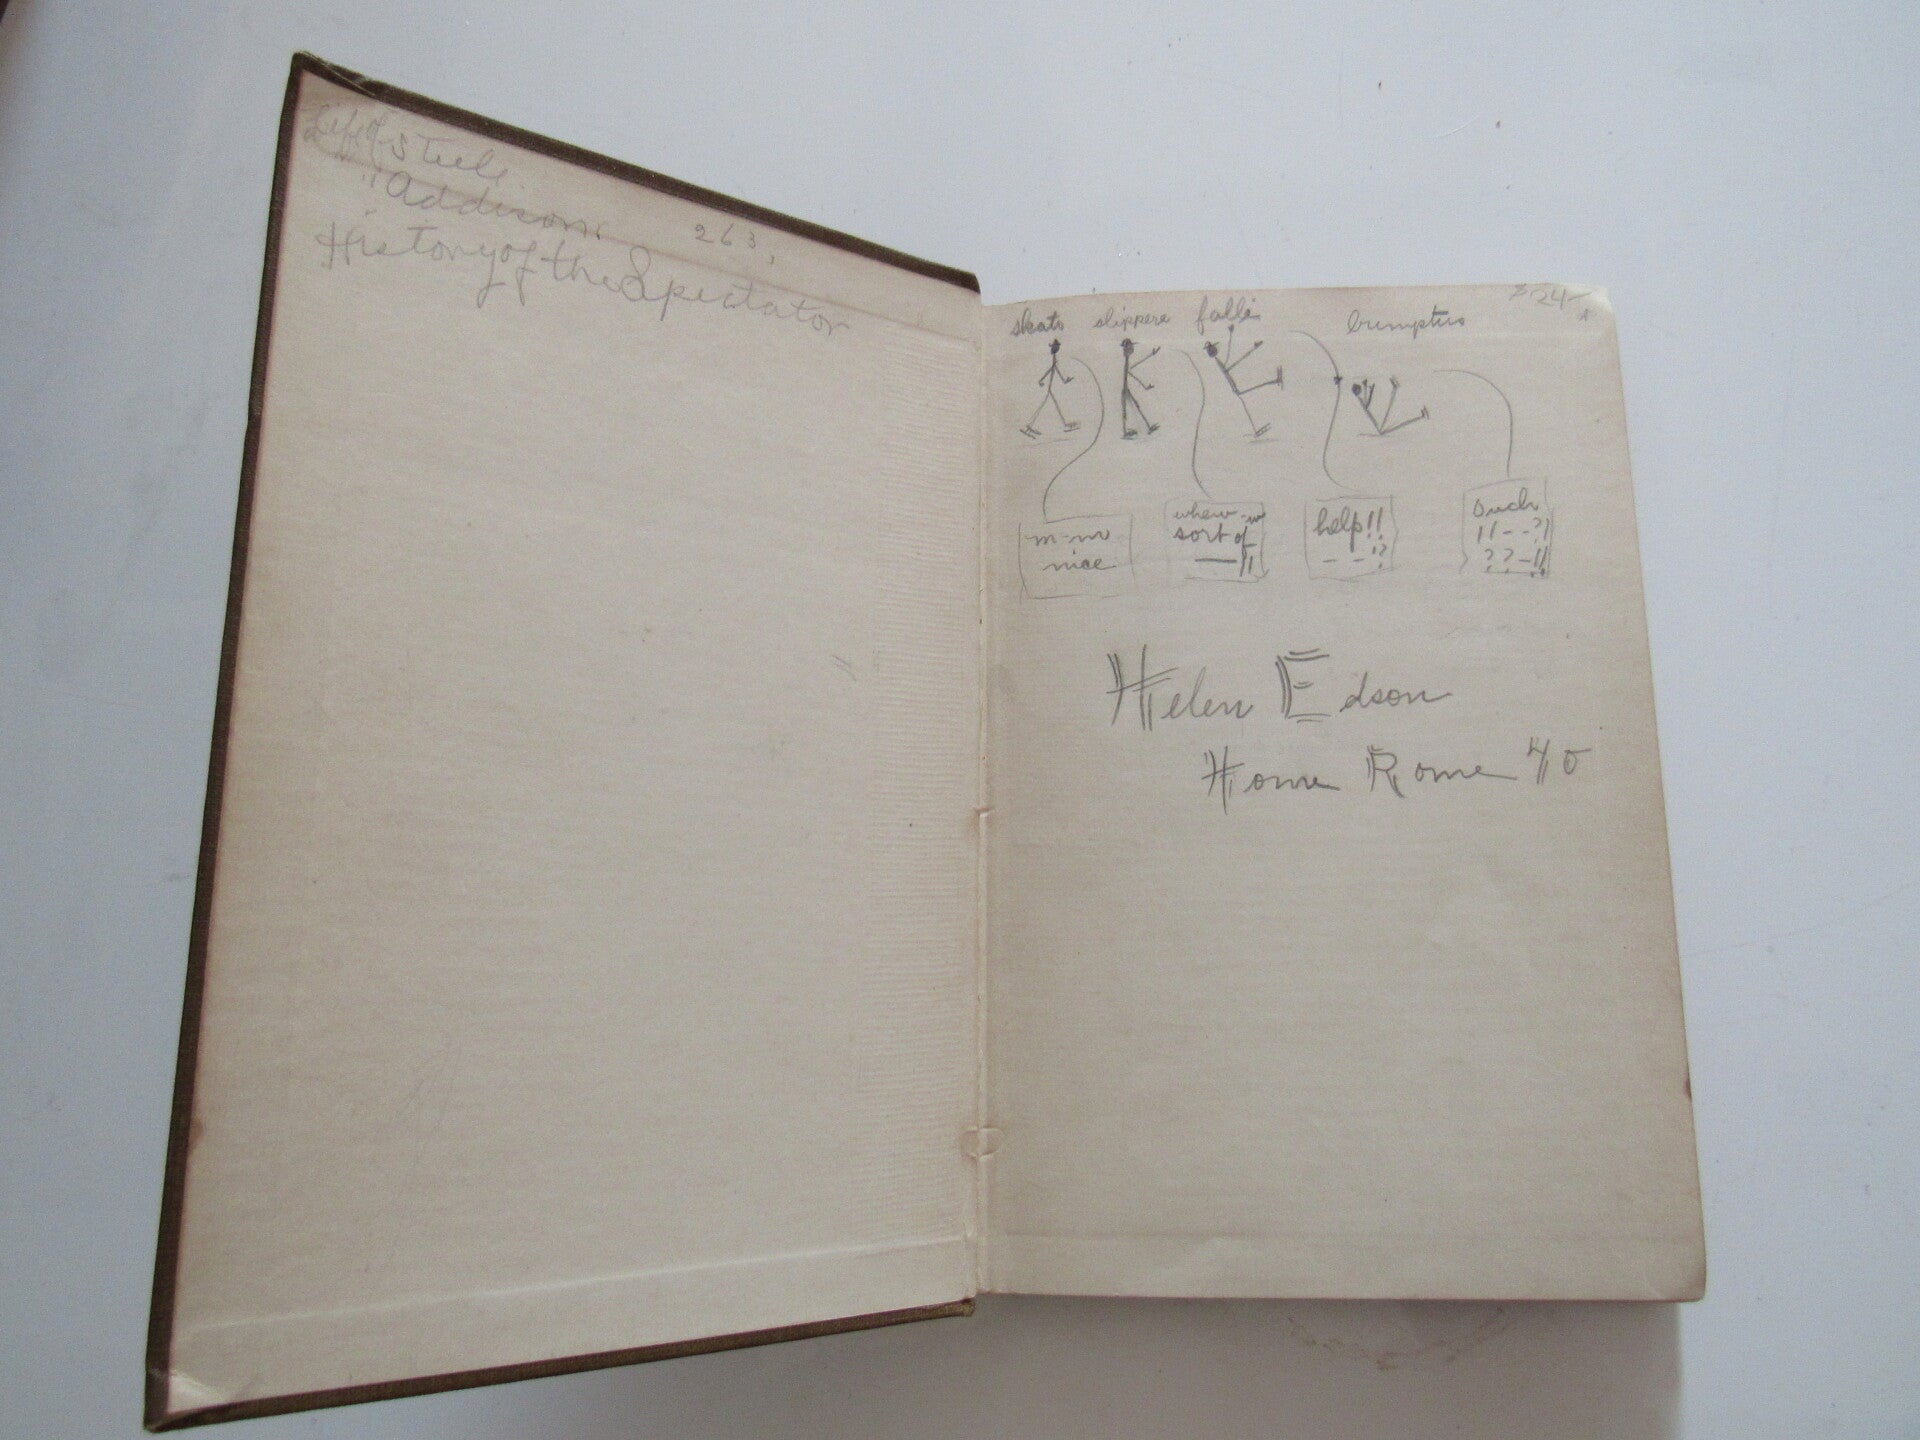 Life of Steele.
" Addison. 263,
History of the Spectator
24
skato slippere falli bumptus
m-m
nice
whew-w
sort of
—!!
help!!
- - !?
Ouch
!! - - ?!
? ? - !!
Helen Edson
Home Rome 40